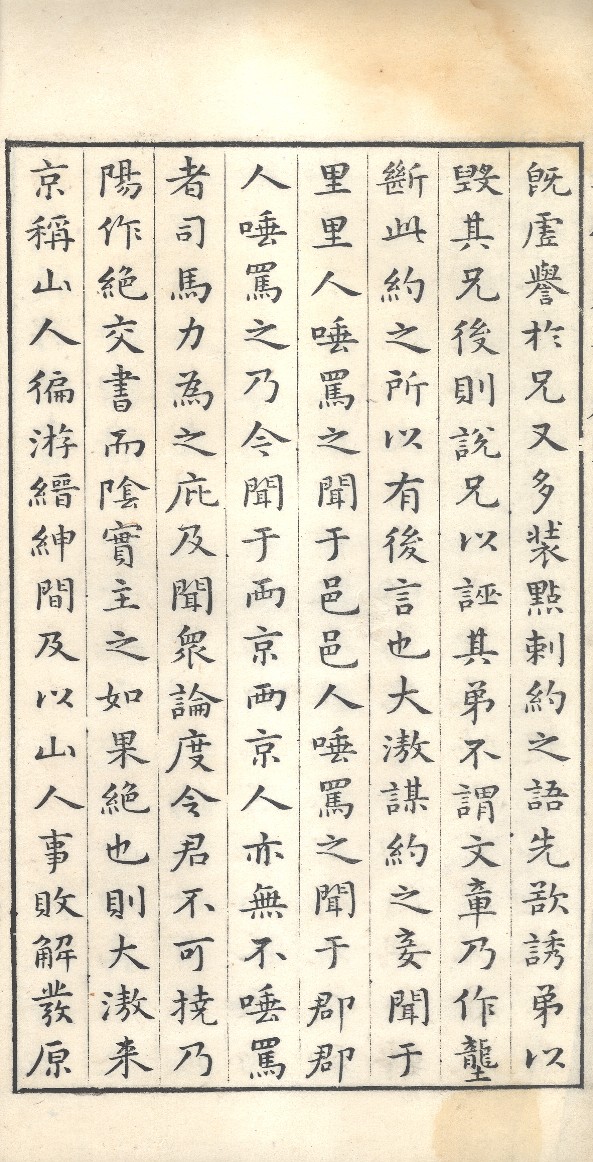 既虛譽於兄又多裝點刺約之語先欲誘弟以
毀其兄後則說兄以誣其弟不謂文章乃作壟
斷此約之所以有後言也大滶謀約之妾聞于
里里人唾罵之聞于邑邑人唾罵之聞于郡郡
人唾罵之乃今聞于兩京兩京人亦無不唾罵
者司馬力為之庇及聞衆論度令君不可撓乃
陽作絕交書而陰實主之如果絕也則大滶来
京稱山人徧游縉紳間及以山人事敗解發原